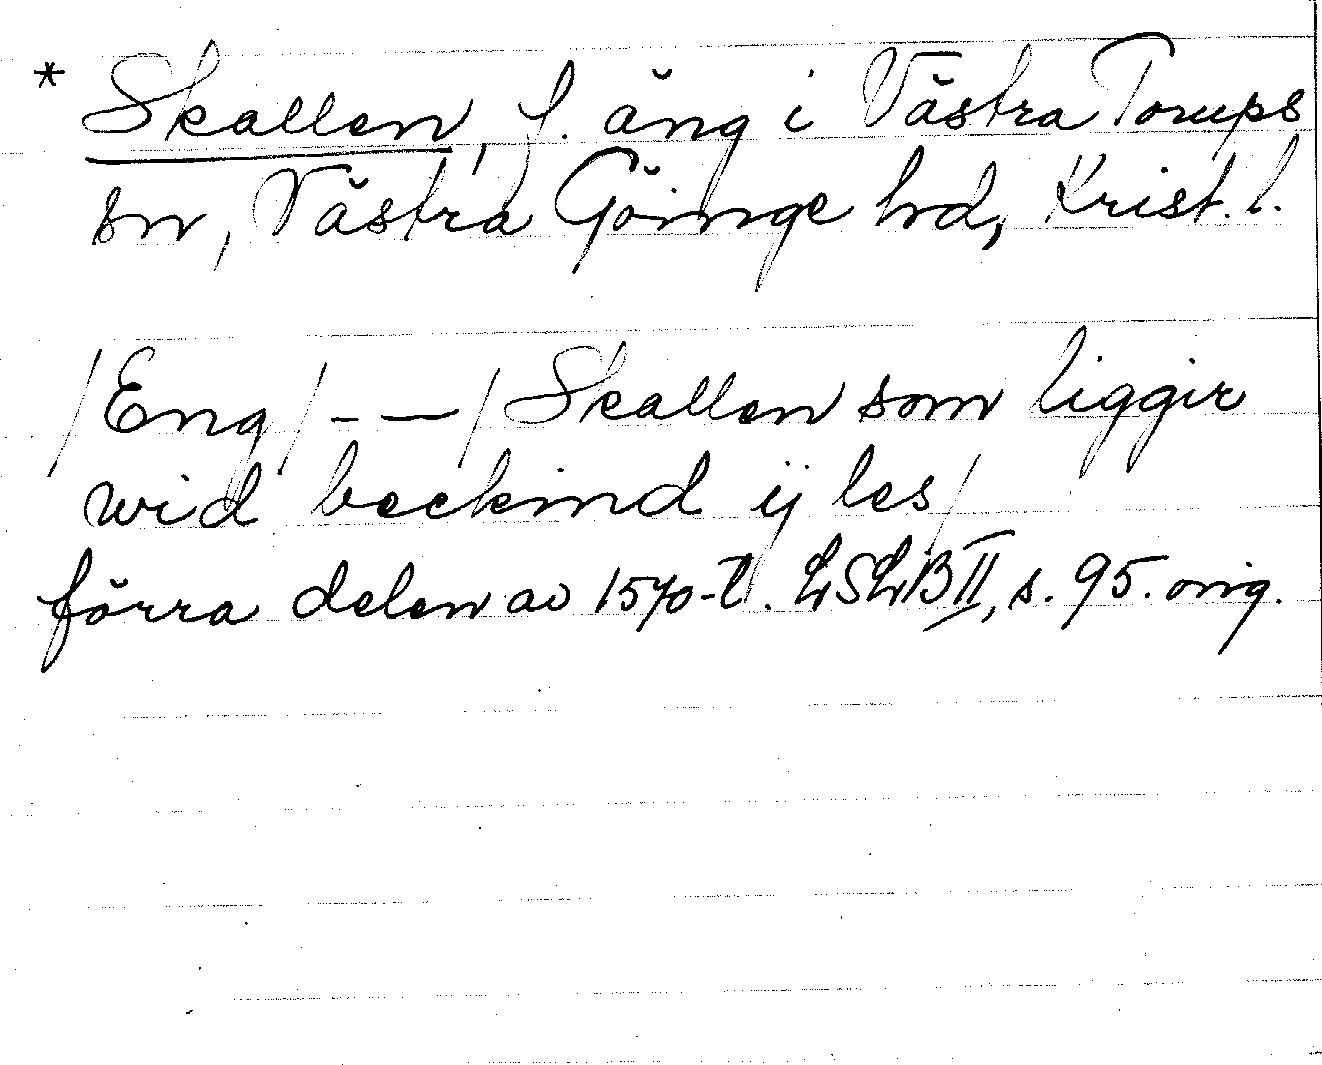 * Skallen, f. äng i Västra Torups
sn, Västra Göinge hd, Krist. l.
/Eng/ - — /Skallen som liggir
wid beckind ij les/
förra delen av 1570-t. LSLB II, s. 95. orig.